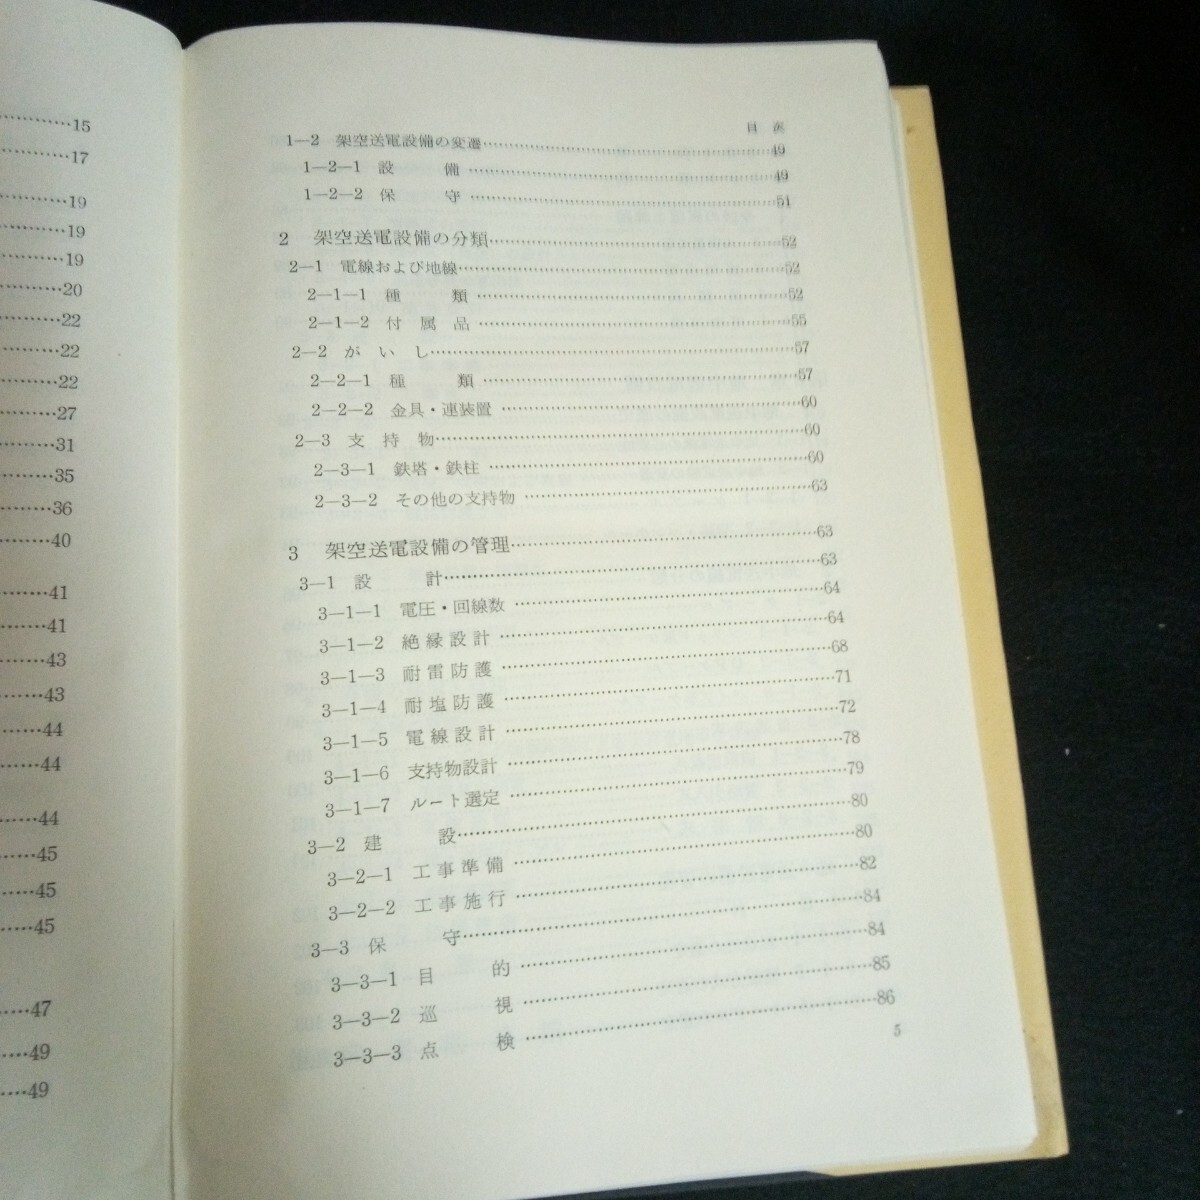 15
17
19
19
19
20
22
22
22
27
31
35
36
40
41
41
43
43
44
44
44
45
45
45
47
49
49
目次
1—2 架空送電設備の変遷……49
1—2—1 設備……49
1—2—2 保守……51
2 架空送電設備の分類……52
2—1 電線および地線……52
2—1—1 種類……52
2—1—2 付属品……55
2—2 がいし……57
2—2—1 種類……57
2—2—2 金具・連装置……60
2—3 支持物……60
2—3—1 鉄塔・鉄柱……60
2—3—2 その他の支持物……63
3 架空送電設備の管理……63
3—1 設計……63
3—1—1 電圧・回線数……64
3—1—2 絶縁設計……64
3—1—3 耐雷防護……68
3—1—4 耐塩防護……71
3—1—5 電線設計……72
3—1—6 支持物設計……78
3—1—7 ルート選定……79
3—2 建設……80
3—2—1 工事準備……80
3—2—2 工事施行……82
3—3 保守……84
3—3—1 目的……84
3—3—2 巡視……85
3—3—3 点検……86
5